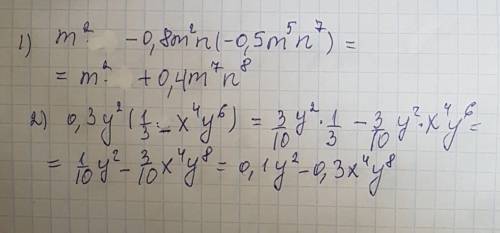 1) m² - 0,8m²n(-0,5m⁵n⁷) =
= m² + 0,4m⁷n⁸
2) 0,3y²(1/3 - x⁴y⁶) = 3/10 y² · 1/3 - 3/10 y² · x⁴y⁶ =
= 1/10 y² - 3/10 x⁴y⁸ = 0,1y² - 0,3x⁴y⁸